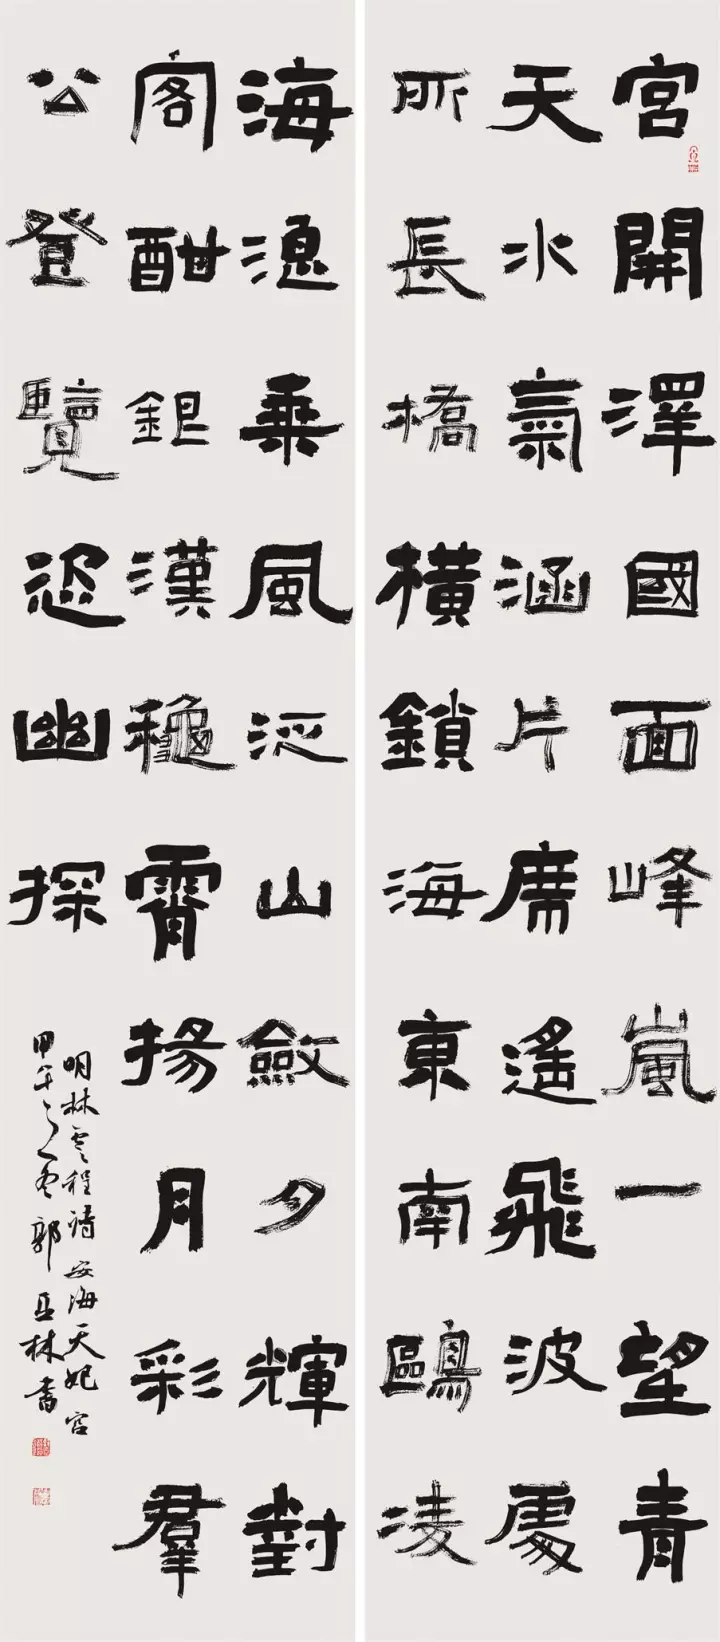 宮開澤國面峰嵐一望青
天水氣涵片席遙飛波處
所長橋橫鎖海東南鷗凌
海乘風泛山斂夕輝對
客酣銀漢穐霄揚月彩羣
公登覽恣幽探
明林雲程詩安海天妃宮
甲午之冬郭亞林書